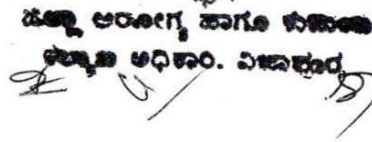 ಜಿಲ್ಲಾ ಆರೋಗ್ಯ ಹಾಗೂ ಕುಟುಂಬ
ಕಲ್ಯಾಣ ಅಧಿಕಾರಿ. ವಿಜಾಪೂರ